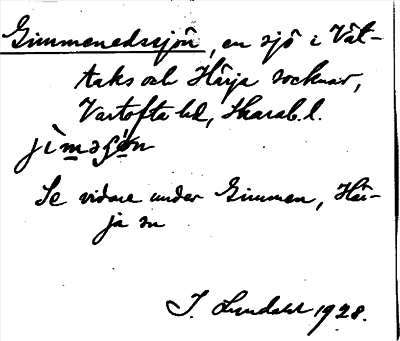 Gimmenedssjön, en sjö i Vät-
taks och Härja socknar,
Vartofta hd, Skarab. l.
Se vidare under Gimmen, Här-
ja sn
I. Lundahl 1928.